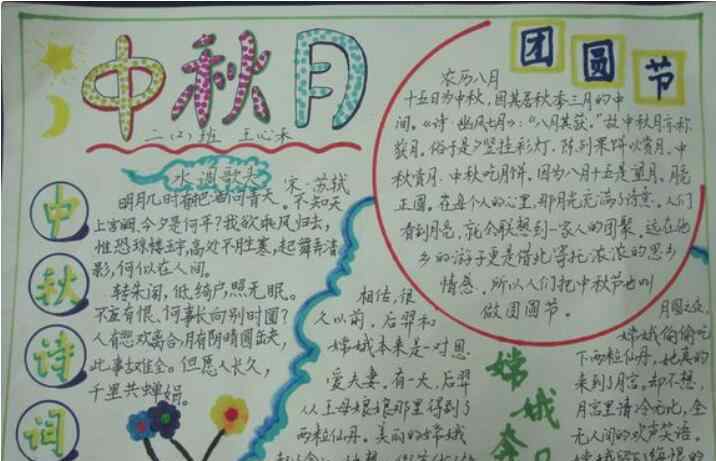 中秋月
二（2）班 王心禾
中秋诗词
水调歌头
宋·苏轼
明月几时有把酒问青天。不知天
上宫阙,今夕是何年?我欲乘风归去,
惟恐琼楼玉宇,高处不胜寒,起舞弄清
影,何似在人间。
转朱阁,低绮户,照无眠。
不应有恨、何事长向别时圆?
人有悲欢离合,月有阴晴圆缺,
此事古难全。但愿人长久,
千里共婵娟。
团圆节
农历八月
十五日为中秋,因其居秋季三月的中
间。《诗·豳风七月》:“八月其获。”故中秋月亦称
获月。俗于是夕竖挂彩灯,陈列果饼以赏月。中
秋赏月、中秋吃月饼。因为八月十五是望月,月
正圆。在每个人的心里,那月光充满了诗意。人们
看到月亮,就会联想到一家人的团聚。远在他
乡的游子更是借此寄托浓浓的思乡
情感。所以人们把中秋节也叫
做团圆节。
相传,很
久以前,后羿和
嫦娥本来是一对恩
爱夫妻。有一天,后羿
从王母娘娘那里得到了
两粒仙丹。美丽的嫦娥
嫦娥奔
月圆之夜,
嫦娥偷偷吃
下两粒仙丹,她真的
来到了月宫。却不想,
月宫里清冷无比,全
无人间的欢声笑语。